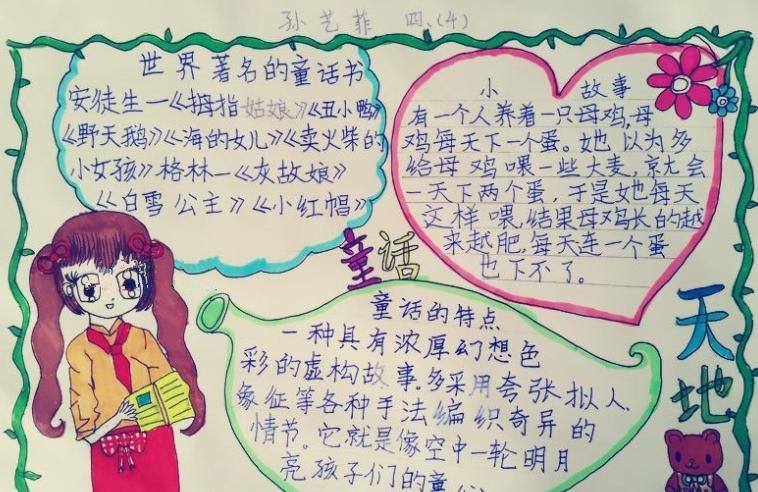 孙艺菲 四.(4)
世界著名的童话书
安徒生—《拇指姑娘》《丑小鸭》
《野天鹅》《海的女儿》《卖火柴的
小女孩》格林—《灰故娘》
《白雪公主》《小红帽》
小故事
有一个人养着一只母鸡,母
鸡每天下一个蛋。她以为多
给母鸡喂一些大麦,京尤会
一天下两个蛋,于是她每天
这样喂,结果母鸡长的越
来越肥,每天连一个蛋
也下不了。
童话
天地
童话的特点
一种具有浓厚幻想色
彩的虚构故事.多采用夸张拟人.
象征等各种手法编织奇异的
情节。它就是像空中一轮明月
亮孩子们的童